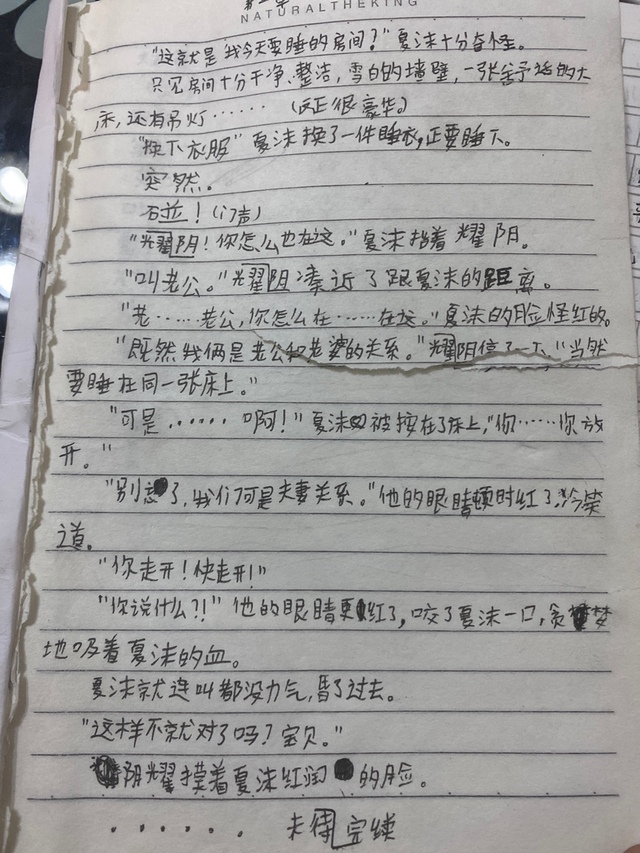 NATURALTHEKING
"这就是我今天要睡的房间？"夏沫十分奇怪。
只见房间十分干净、整洁，雪白的墙壁，一张舒适的大
床，还有吊灯……（反正很豪华。）
"换下衣服"夏沫换了一件睡衣，正要睡下。
突然。
砬！（门声）
"耀阴！你怎么也在这。"夏沫指着耀阴。
"叫老公。"耀阴凑近了跟夏沫的距离。
"老……老公，你怎么在……在这。"夏沫的脸怪红的。
"既然我俩是老公和老婆的关系。"耀阴停了一下。"当然
要睡在同一张床上。"
"可是……啊！"夏沫被按在了床上，"你……你放
开。"
"别忘了，我们可是夫妻关系。"他的眼睛顿时红了，冷笑
道。
"你走开！快走开！"
"你说什么？！"他的眼睛更红了，咬了夏沫一口，贪梦
地吸着夏沫的血。
夏沫就连叫都没力气，昏了过去。
"这样不就对了吗？宝贝。"
阴耀摸着夏沫红润的脸。
……未待完续